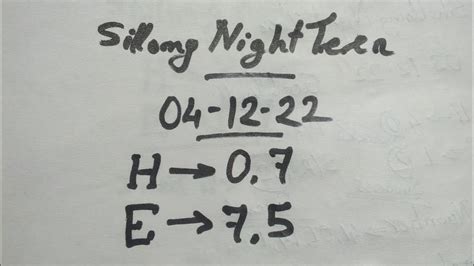 Sillong Night Teer
04-12-22
H→0.7
E→7.5